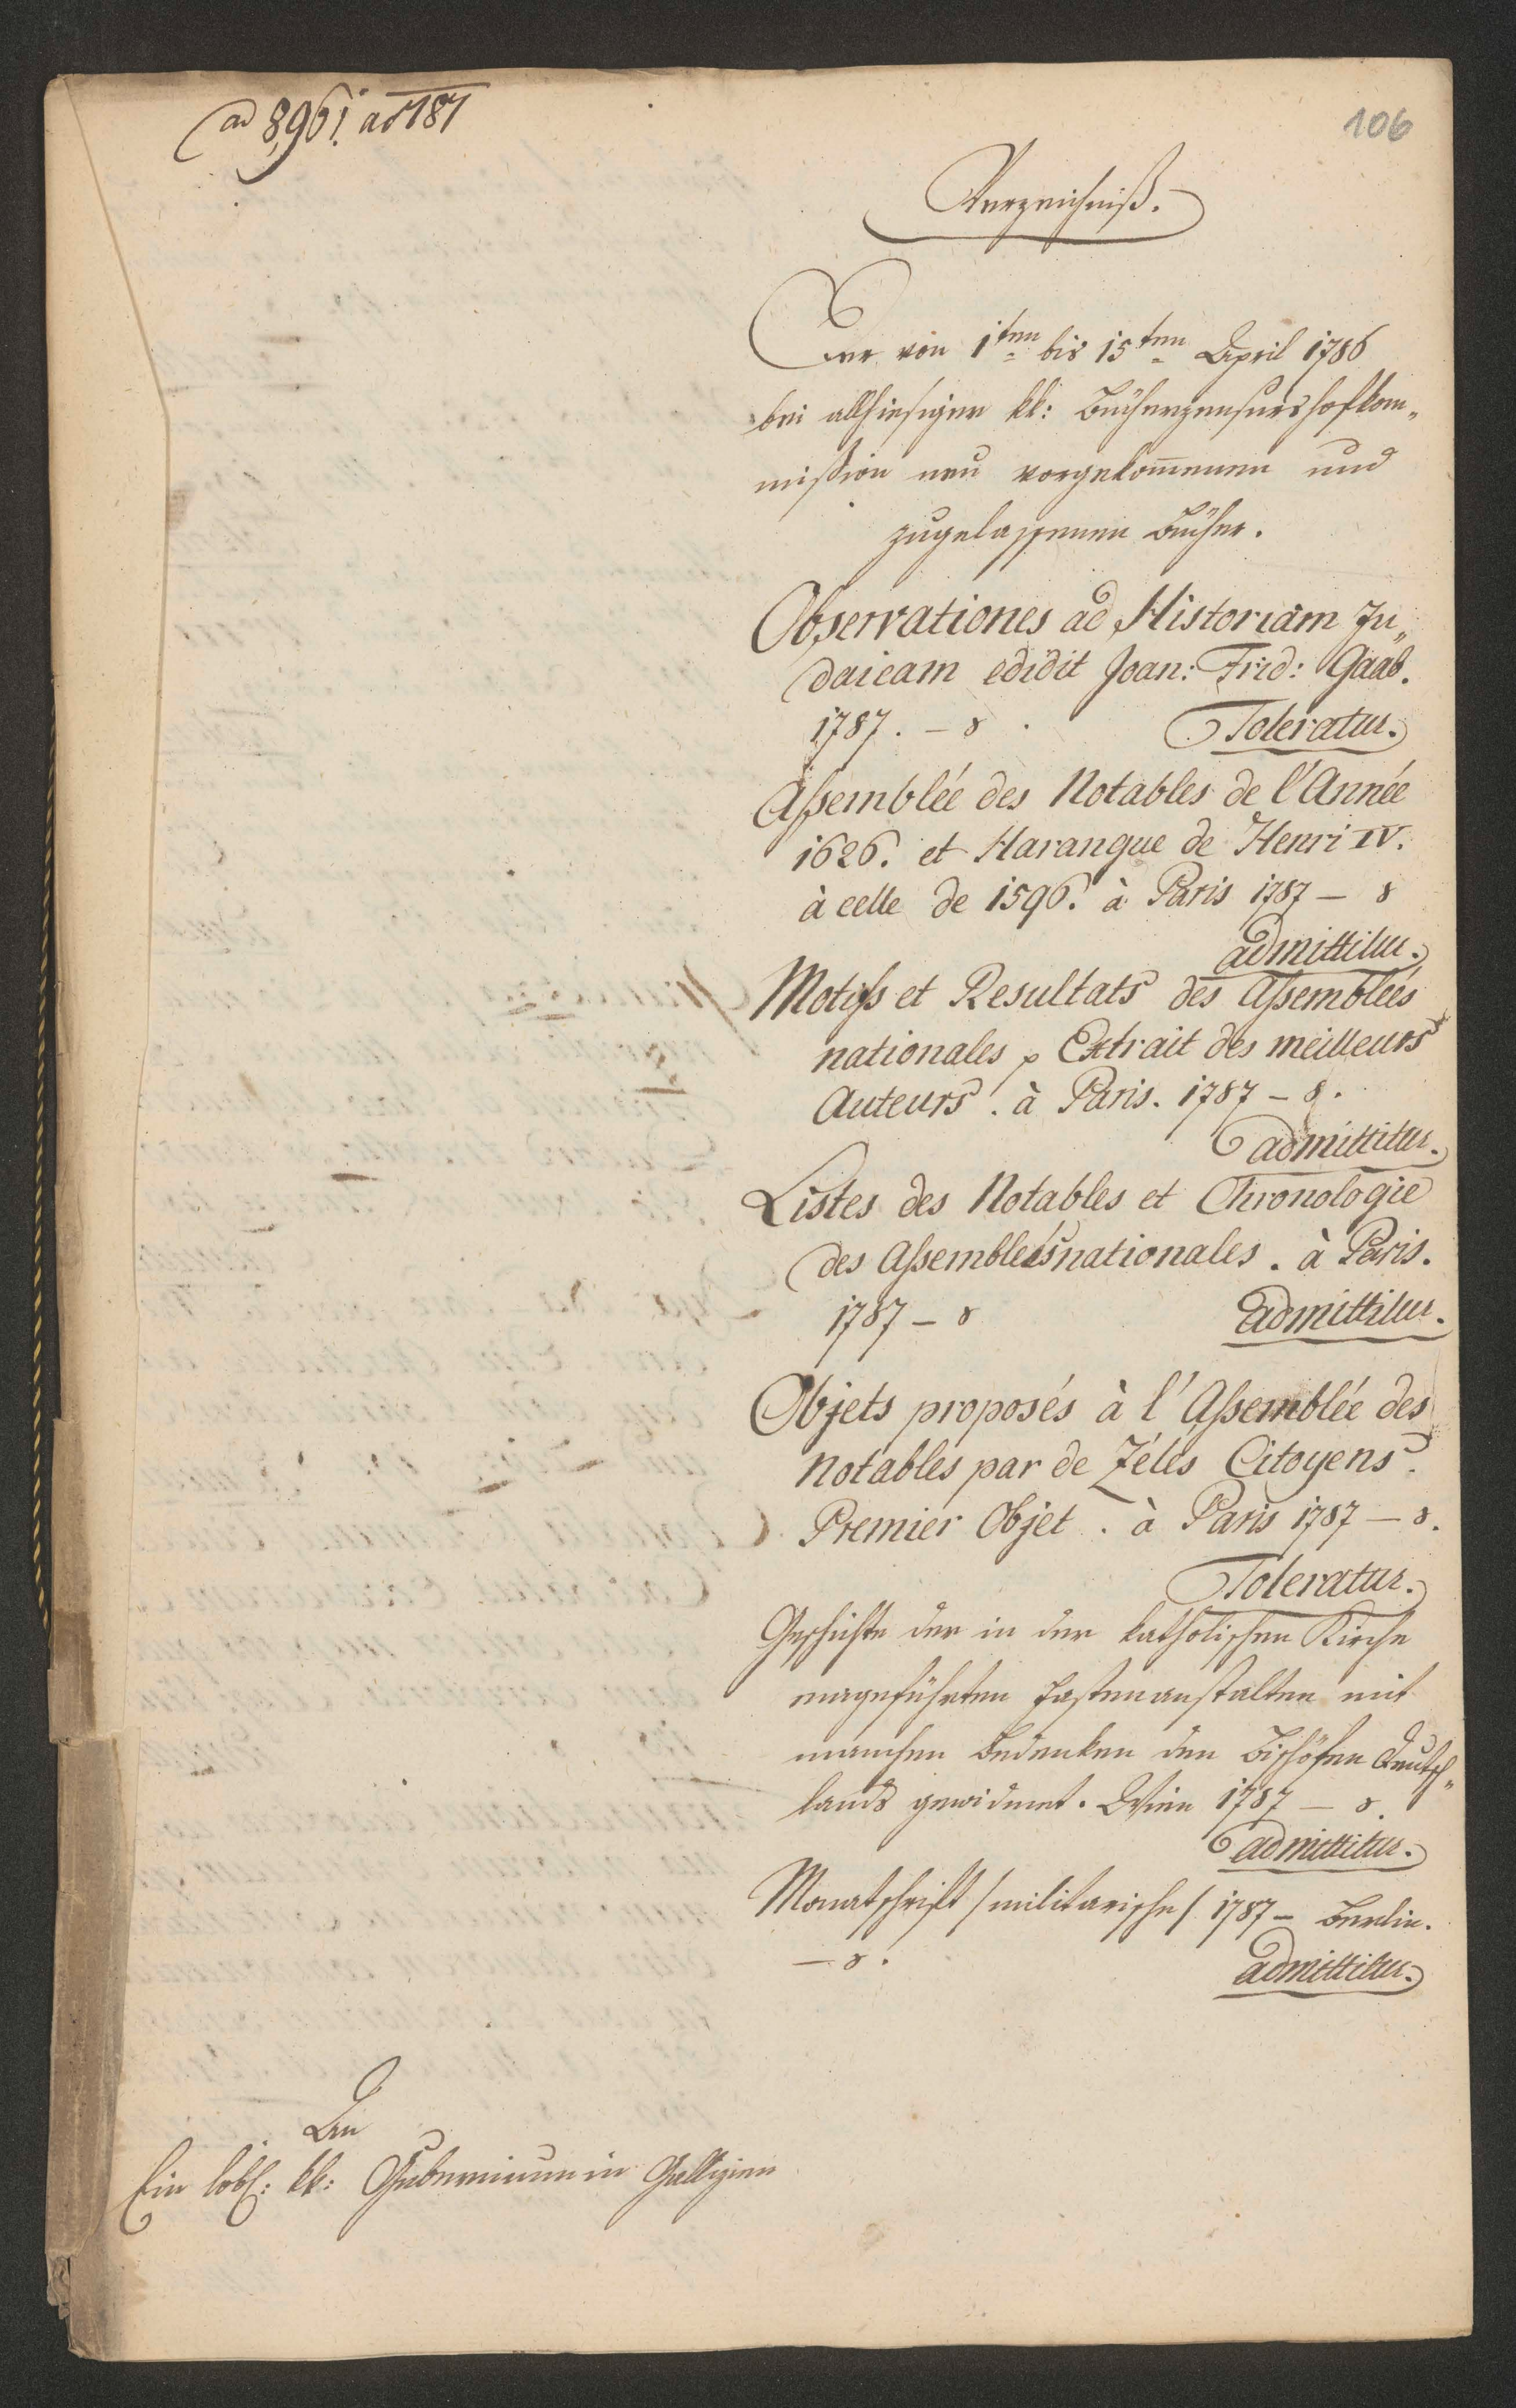 ad 896! ad 187
106
Verzeichniß.
Der von 1ten bis 15ten April 1786
bei allhiesiger kk: Bücherzensurshofkom„
mission neu vorgekom̅enen und
zugelassenen Bücher.
Observationes ad Historiam Ju„
daicam edidit Joan: Frid: Gaab.
1787. – 8. Toleratur.
Assemblée des Notables de l'Année
1626. et Harangue de Henri IV.
à celle de 1596. à Paris 1787 – 8
admittitur.
Motifs et Resultats des Assembleés
nationales, Extrait des meilleurs
Auteurs. à Paris. 1787 – 8.
admittitur.
Listes des Notables et Chronologie
des Assembleés nationales. à Paris.
1787 – 8 admittitur.
Objets proposés à l'Assemblée des
Notables par de Zélés Citoyens.
Premier Objet. à Paris 1787 – 8.
Toleratur.
Geschichte der in der katholischen Kirche
eingeführten Fastenanstalten mit
manchen Bedenken den Bischöfen Deutsch„
lands gewidmet. Wien 1787 – 8.
admittitur.
Monatschrift /militarische/ 1787 – Berlin.
– 8. admittitur.
An
Ein löbl: kk: Gubernium in Gallizien